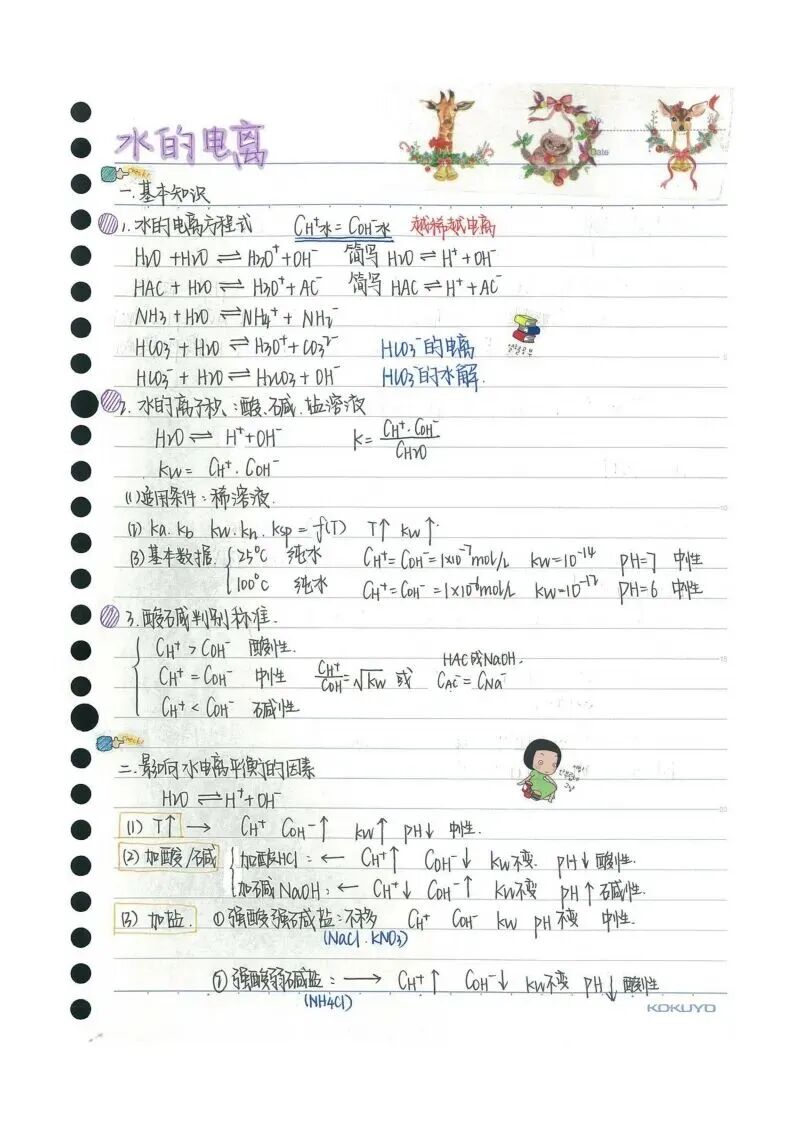 水的电离
Date
check!
一.基本知识
1.水的电离方程式 CH⁺水=COH⁻水 越稀越电离
H₂O+H₂O⇌H₃O⁺+OH⁻ 简写 H₂O⇌H⁺+OH⁻
HAC+H₂O⇌H₃O⁺+AC⁻ 简写 HAC⇌H⁺+AC⁻
NH₃+H₂O⇌NH₄⁺+NH₂⁻
HCO₃⁻+H₂O⇌H₃O⁺+CO₃²⁻ HCO₃⁻的电离
HCO₃⁻+H₂O⇌H₂CO₃+OH⁻ HCO₃⁻的水解.
2.水的离子积.:酸.碱.盐溶液
H₂O⇌H⁺+OH⁻ K=CH⁺·COH⁻/CH₂O
Kw=CH⁺·COH⁻
(1)适用条件:稀溶液.
(2) Ka.Kb Kw.Kh.Ksp=f(T) T↑ Kw↑.
(3)基本数据.{25°C 纯水 CH⁺=COH⁻=1×10⁻⁷mol/L Kw=10⁻¹⁴ PH=7 中性
100°C 纯水 CH⁺=COH⁻=1×10⁻⁶mol/L Kw=10⁻¹² PH=6 中性
3.酸碱判别标准.
CH⁺>COH⁻ 酸性.
HAC或NaOH.
CH⁺=COH⁻ 中性 CH⁺/COH⁻=√Kw 或 CAC⁻=CNa⁻
CH⁺<COH⁻ 碱性
check!
二.影响水电离平衡的因素
H₂O⇌H⁺+OH⁻
(1) T↑ → CH⁺ COH⁻↑ Kw↑ PH↓ 中性.
(2)加酸/碱 {加酸HCl:← CH⁺↑ COH⁻↓ Kw不变. PH↓酸性.
加碱NaOH:← CH⁺↓ COH⁻↑ Kw不变 PH↑碱性.
(3)加盐. ①强酸强碱盐:不移 CH⁺ COH⁻ Kw PH不变 中性.
(NaCl.KNO₃)
②强酸弱碱盐:→ CH⁺↑ COH⁻↓ Kw不变 PH↓酸性
(NH4Cl)
KOKUYO